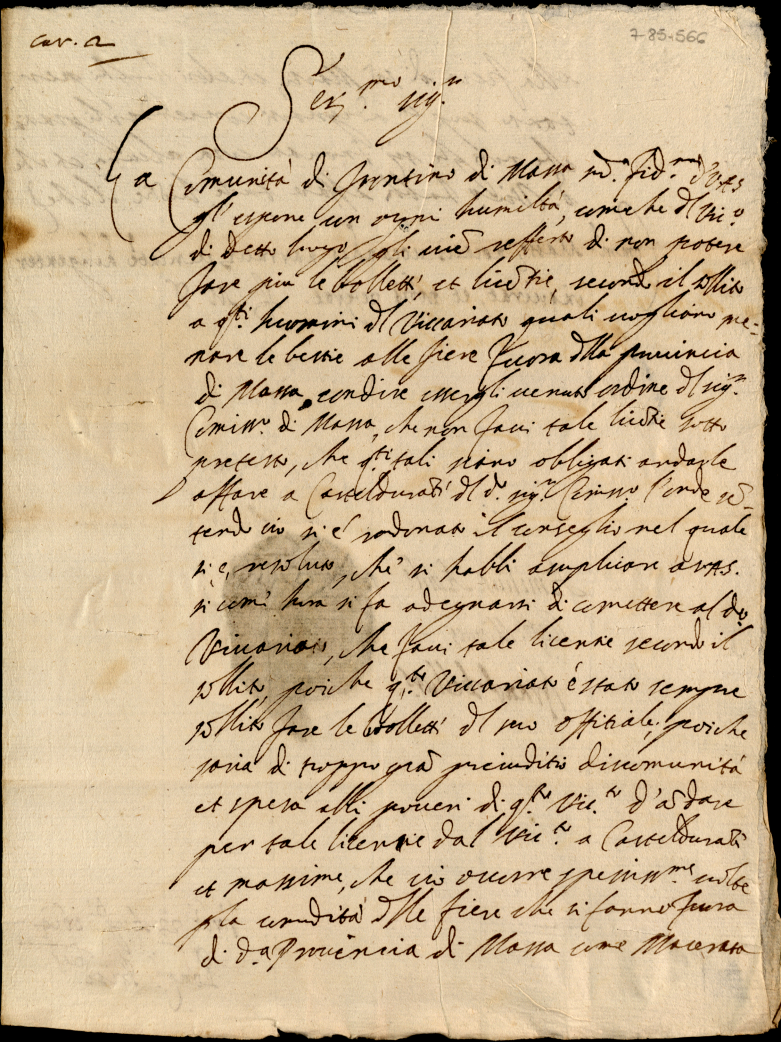 car. 2
7-85-566
Ser.mo sig.r
La Comunità di Frontino di Massa
gl'espone con ogni humiltà, come che dl Vic.o
di detto luogo gli vien refferto di non potere
fare più le bollette, et licẽtie, secondo il sollito
a q.ti huomini dl Viccariato quali vogliono me=
nare le bestie alle fiere fuora dlla provincia
di Massa, con dire essergli venuto ordine dl sig.r
Comiss.o di Massa, che non facci tale licẽtie sotto
pretesto, che q.ti tali siano obligati andarle
affare a Casteldurãti dl d.o sig.r Comiss.o l'onde sẽ-
tendo ciò si è radonato il conseglio nel quale
si è resoluto, che si habbi a supplicare a V.A.S.
si come hora si fa a degnarsi di comettere al d.o
Viccariato, che facci tale licentie secondo il
sollito, poiche q.to Viccariato è stato sempre
sollito fare le bollette dl suo offitiale, poiche
saria di troppo grã preiuditio di comunità
et spesa alli poveri di q.to Vic.to d'ãdare
per tale licentie dal Vic.to a Casteldurãti
et massime, che ciò occorre spessiss.me volte
p la comodità dlle fiere che si fanno fuora
di d.a Provincia di Massa come Macerata